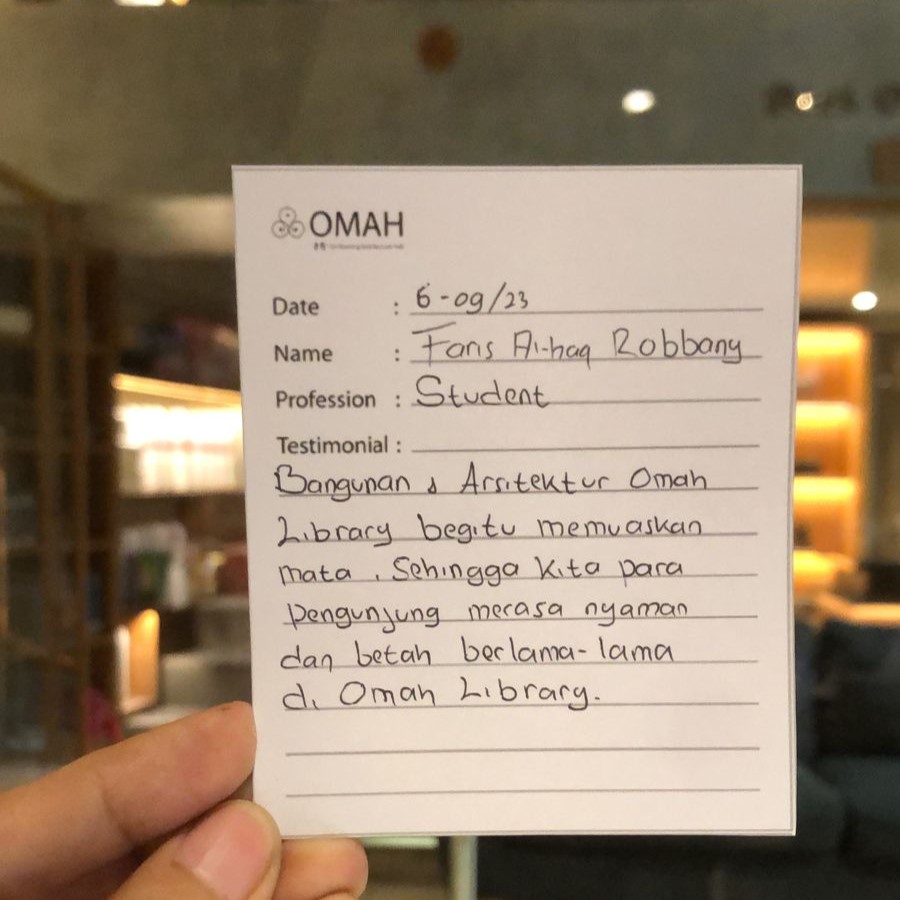 OMAH
Date : 6-09/23
Name : Faris Al-haq Robbany
Profession : Student
Testimonial :
Bangunan & Arsitektur Omah
Library begitu memuaskan
mata, Sehingga kita para
pengunjung merasa nyaman
dan betah berlama-lama
di Omah Library.